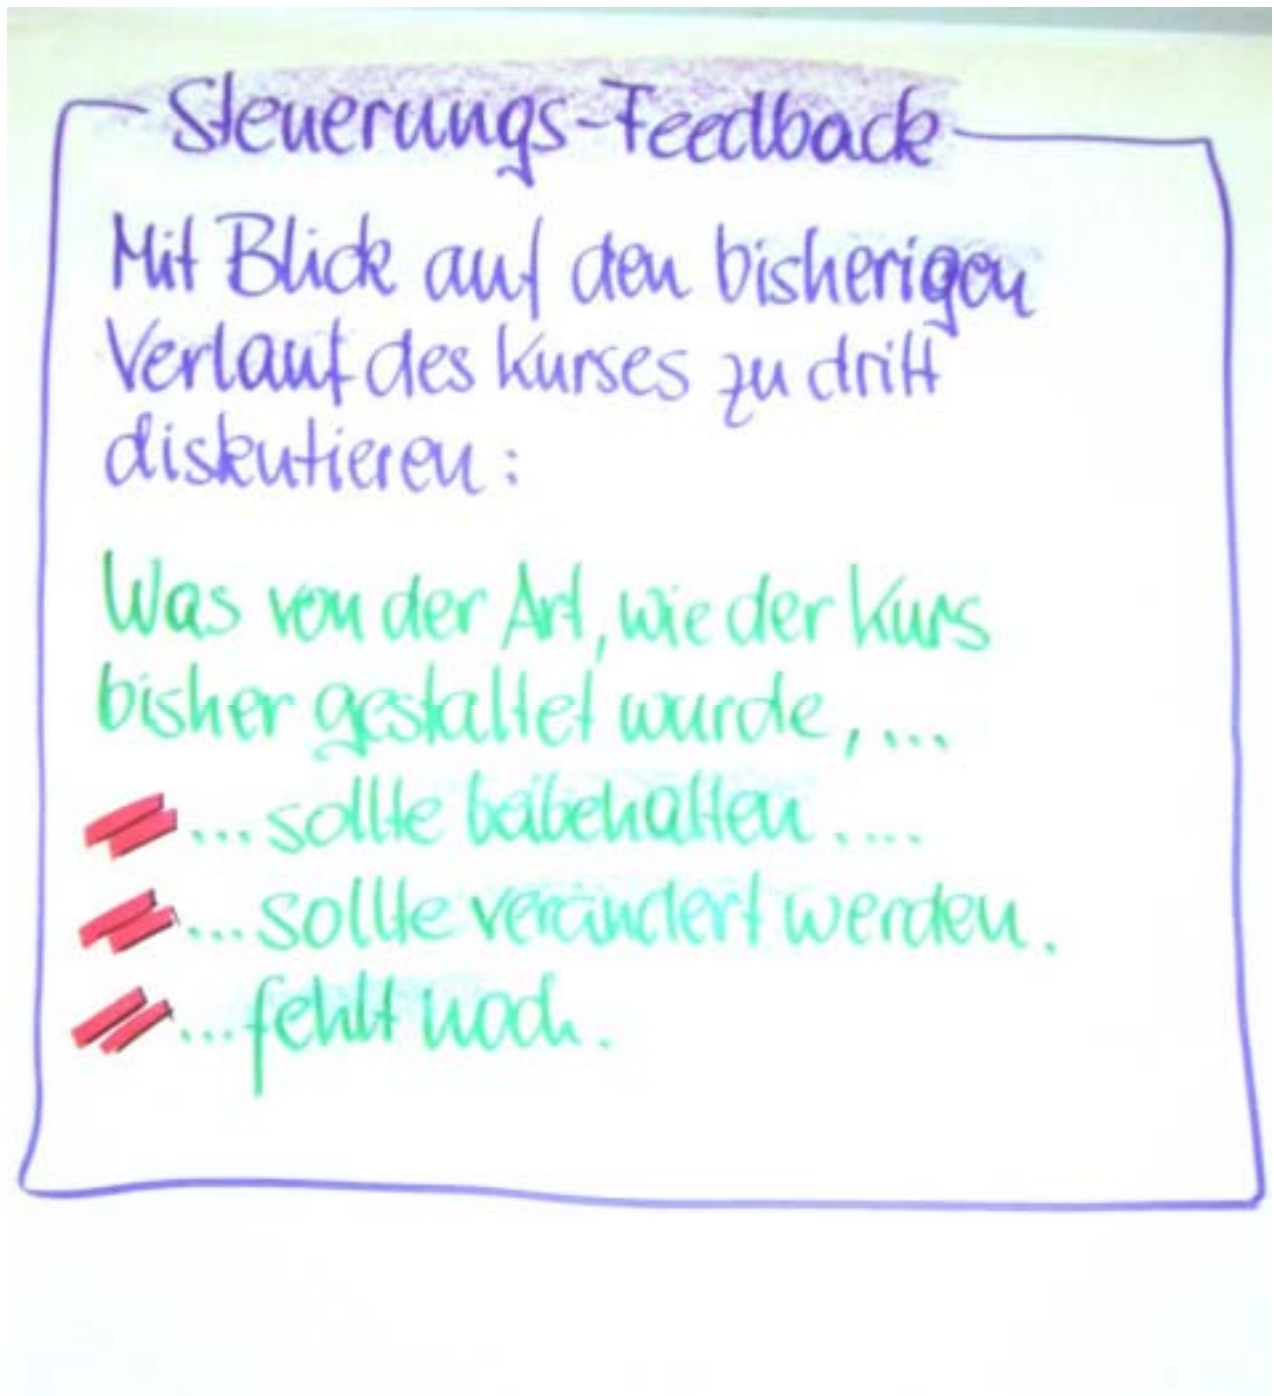 Steuerungs-Feedback
Mit Blick auf den bisherigen
Verlauf des Kurses zu dritt
diskutieren:
Was von der Art, wie der Kurs
bisher gestaltet wurde, ...
... sollte beibehalten ....
... sollte verändert werden.
... fehlt noch.